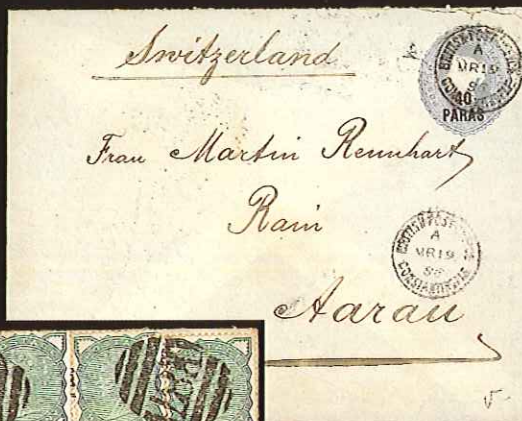 Switzerland
BRITISH POST OFFICE
A
MR 19
CONSTANTINOPLE
40
PARAS
Frau Martin Rennhart
Rain
BRITISH POST OFFICE
A
MR 19
CONSTANTINOPLE
Aarau